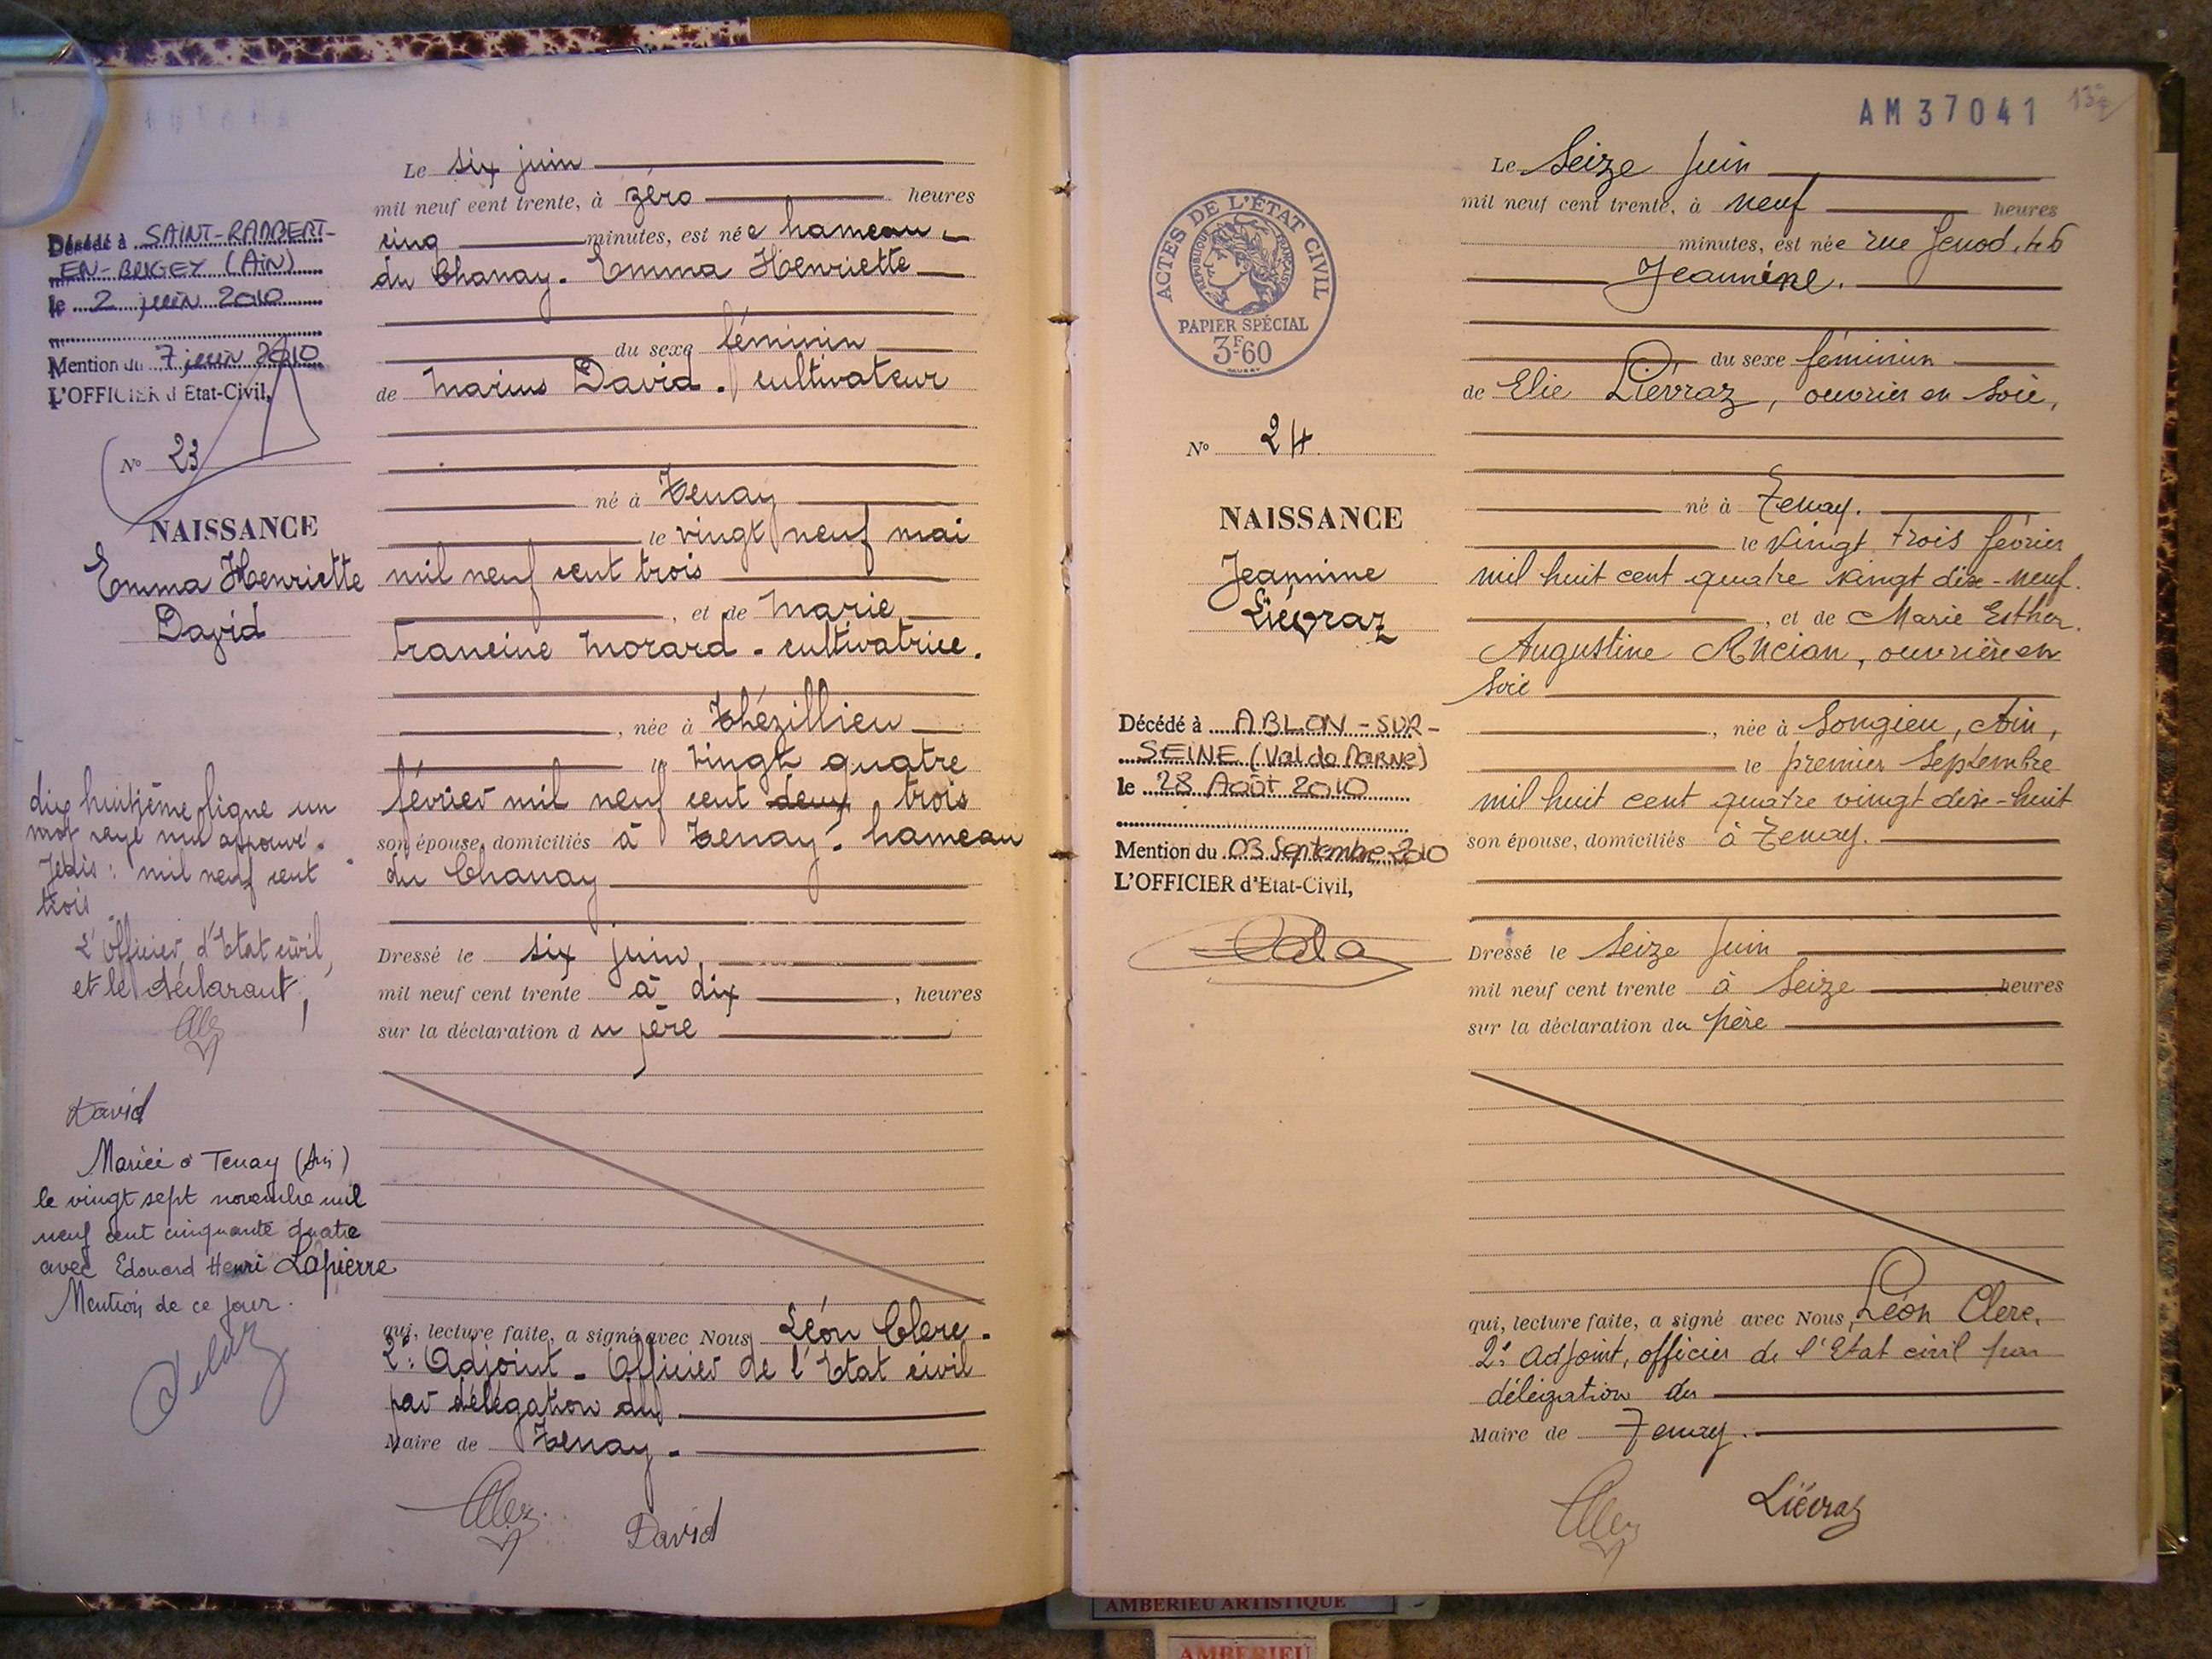 Le six juin
mil neuf cent trente, à zéro heures
cinq minutes, est née hameau
du Chanay. Emma Henriette
du sexe féminin
de Marius David. cultivateur
né à Tenay
le vingt neuf mai
mil neuf cent trois
, et de Marie
Francine Morard - cultivatrice.
, née à Thézillieu
le vingt quatre
février mil neuf cent deux, trois
son épouse, domiciliés à Tenay. hameau
du Chanay
Dressé le six juin
mil neuf cent trente à dix, heures
sur la déclaration du père
qui, lecture faite, a signé avec Nous Léon Clerc.
2e Adjoint - Officier de l'Etat civil
par délégation du
Maire de Tenay.
David
Décédé à SAINT-RAMBERT-
EN-BUGEY (AIN)
le 2 juin 2010
Mention du 7 juin 2010
L'OFFICIER d'Etat-Civil,
No 23
NAISSANCE
Emma Henriette
David
dix huitième ligne un
mot rayé nul approuvé.
Je dis : mil neuf cent
trois
L'Officier d'Etat civil,
et le déclarant,
David
Mariée à Tenay (Ain)
le vingt sept novembre mil
neuf cent cinquante quatre
avec Edouard Henri Lapierre
Mention de ce jour.
AM37041
ACTES DE L'ÉTAT CIVIL
RÉPUBLIQUE FRANÇAISE
PAPIER SPÉCIAL
3F60
No 24
NAISSANCE
Jeannine
Liévraz
Décédé à ABLON-SUR-
SEINE (Val de Marne)
le 28 Août 2010
Mention du 03 Septembre 2010
L'OFFICIER d'Etat-Civil,
Le Seize Juin
mil neuf cent trente, à neuf heures
minutes, est née rue Genod, 46
Jeannine.
du sexe féminin
de Elie Liévraz, ouvrier en soie,
né à Tenay.
le vingt trois février
mil huit cent quatre vingt dix-neuf.
, et de Marie Esther
Augustine Ancian, ouvrière en
soie
, née à Songieu, Ain,
le premier Septembre
mil huit cent quatre vingt dix-huit
son épouse, domiciliés à Tenay.
Dressé le Seize Juin
mil neuf cent trente à Seize heures
sur la déclaration du père
qui, lecture faite, a signé avec Nous, Léon Clerc,
2e adjoint, officier de l'Etat civil par
délégation du
Maire de Tenay.
Liévraz
AMBERIEU ARTISTIQUE
AMBERIEU